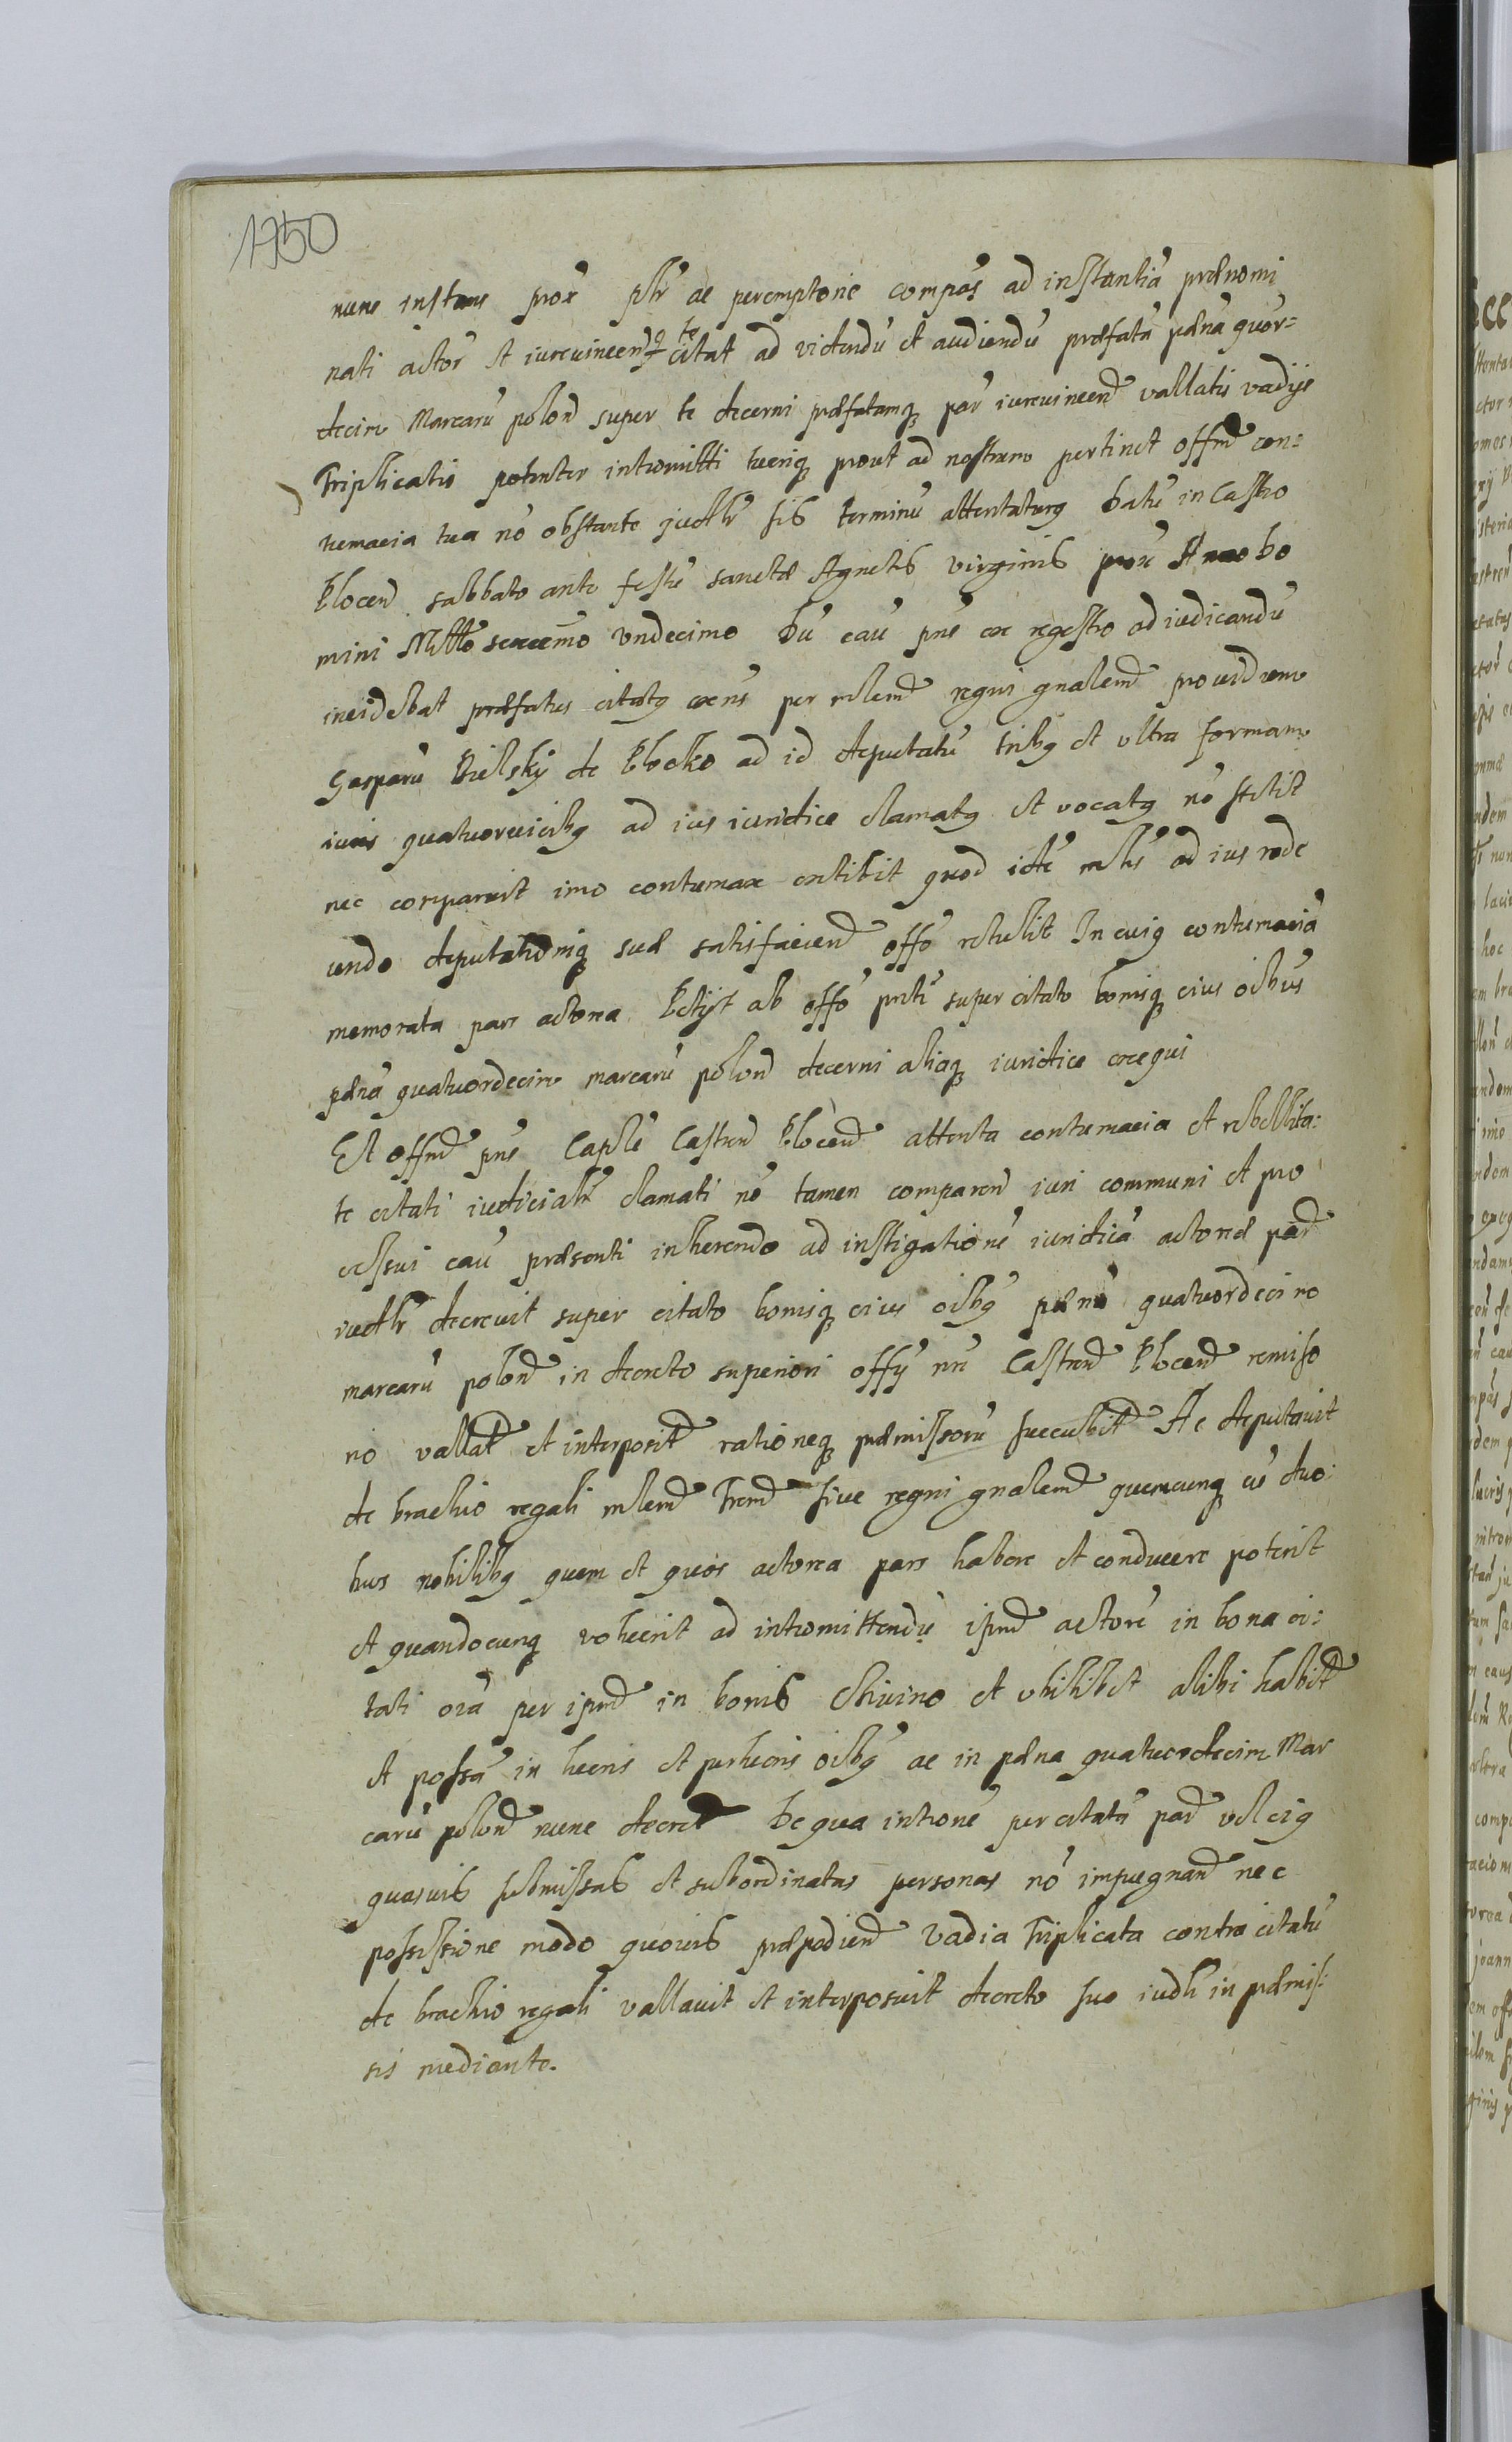 1950
nunc instans prox pltr ac peremptorie compás ad instantiá prænomi
nati actor et iurevincend citat te ad videndú et audiendú præfatá pæná quor=
decim Marcarú polon super te decerni præfatamq par iurevincend vallatis vadijs
Triplicatis potenter intromitti tuerique prout ad nostrum pertinet offm con=
tumacia tua nó obstante judtr sis terminú attentaturus Datú in Castro
Plocen sabbato ante festú sanctæ Agnetis virginis prox Anno Do
mini Millo sexcemo Undecimo Dú cau pns ex regestro ad iudicandú
incidebat præfatus citatus per mlem regni gnalem providum
Gasparú Bielsky de Plocko ad id deputatú tribus et ultra formam
iuris quatuorvicibus ad ius iuridice clamatus et vocatus nó stetit
nec comparuit imo contumax extitit quod idé mlis ad ius rede
undo deputationiq suæ satisfaciend offo retulit In cuius contumaciá
memorata pars actorea Petijt ab offo pnti super citato bonisq eius oibus
pæná quatuordecim marcarú polon decerni aliaq iuridice exequi
Et offm pns Caple Castren Plocen attenta contumacia et rebellita:
te citati iudicialr clamati nó tamen comparen iuri communi et pro
cessui cau præsenti inherendo ad instigationé iuridicá actoreæ par
iudtr decrevit super citato bonisq eius oibus pæná quatuordecim
marcarú polon in decreto superiori offij nri Castren Plocen remisso
nó vallat et interposit rationeq præmissorú succubit Ac deputavit
de brachio regali mlem Trem sive regni gnalem quemcunq cú duo:
bus nobilibus quem et quos actorea pars habere et conducere poterit
et quandocunq voluerit ad intromittendú ipm actoré in bona ci:
tati oia per ipm in bonis et ubilibet alibi habit
et possa in lucris et perlucris oibus ac in pæna quatuordecim Mar
carú polon nunc decret De qua intromé per citatá par vel eius
quasvis submissas et subordinatas personas nó impugnand nec
possessione modo quovis præpediend Vadia Triplicata contra citatú
de brachio regali vallavit et interposuit decreto suo iudli in præmis:
sis mediante.